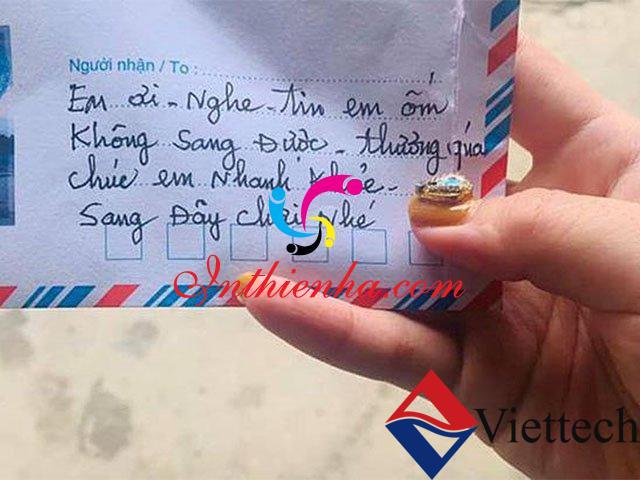 Người nhận / To :
Em ơi - Nghe tin em ốm
Không Sang Được - thương qúa
chúc em Nhanh Khỏe -
Sang Đây chơi Nhé
Inthienha.com
Viettech